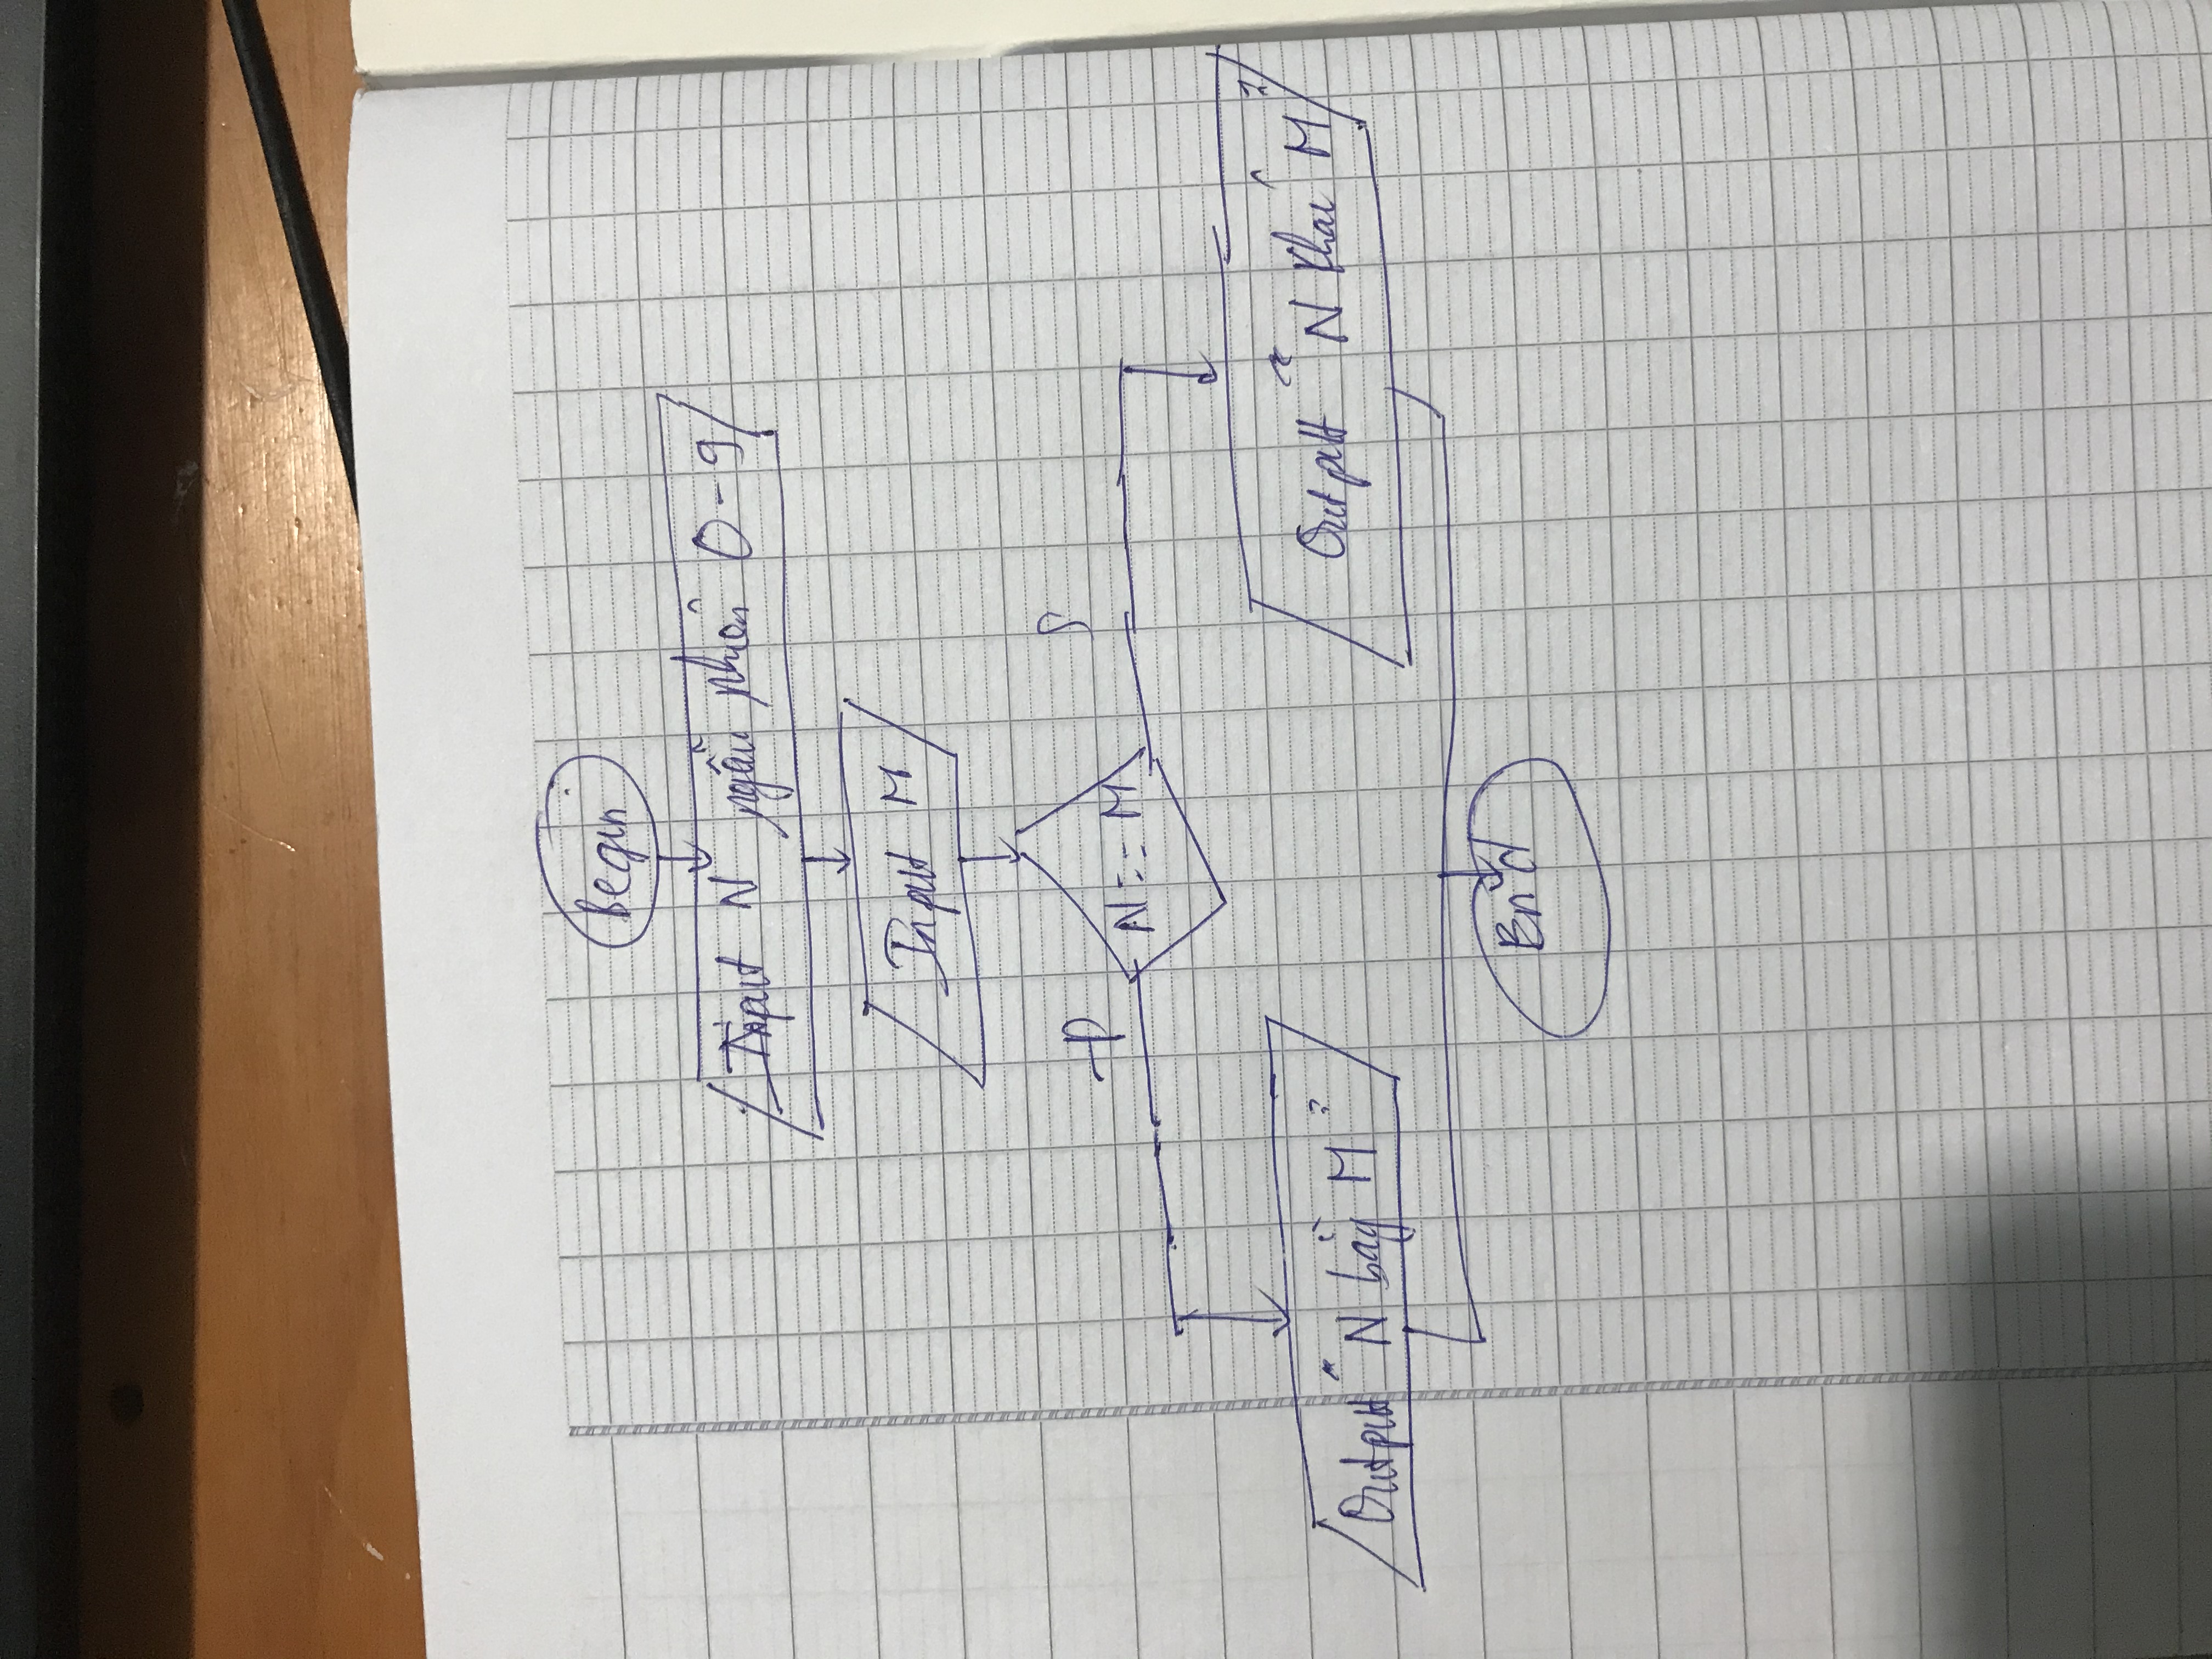 Begin
Input N ngẫu nhiên 0-9
Input M
Đ
S
N == M
Output "N bằng M"
Output "N khác M"
End